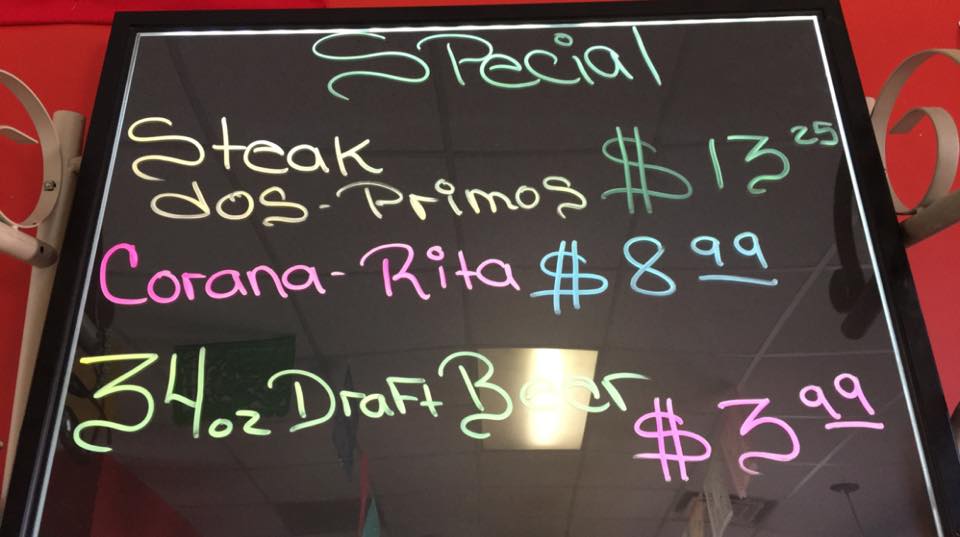 Special
Steak
dos-Primos $13 25
Corana-Rita $8 99
34oz Draft Beer $3 99